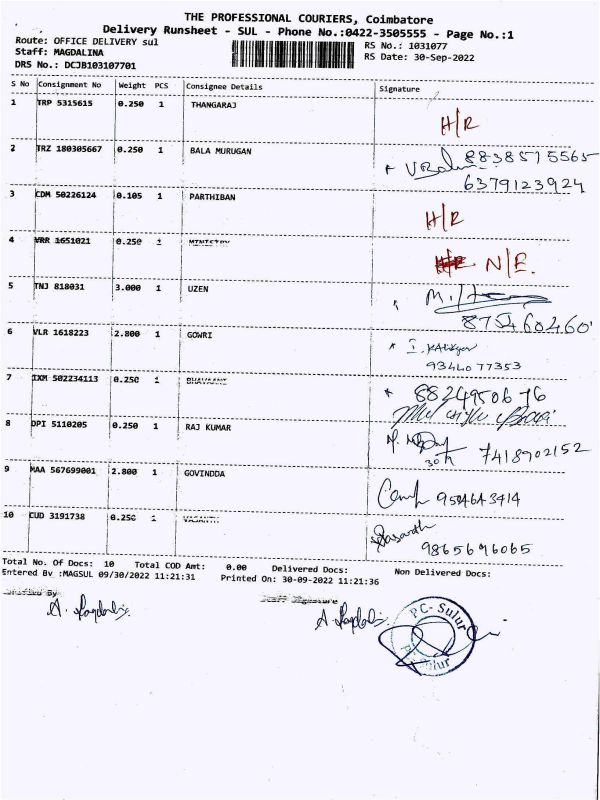 THE PROFESSIONAL COURIERS, Coimbatore
Delivery Runsheet - SUL - Phone No.:0422-3505555 - Page No.:1
Route: OFFICE DELIVERY sul
RS No.: 1031077
Staff: MAGDALINA
RS Date: 30-Sep-2022
DRS No.: DCJB103107701
S No Consignment No Weight PCS Consignee Details Signature
1 TRP 5315615 0.250 1 THANGARAJ
H/R
2 TRZ 180305667 0.250 1 BALA MURUGAN 8838515565
6379123924
3 CDM 50226124 0.105 1 PARTHIBAN
H/R
4 VRR 1651021 0.250 1 MINISTRY
N/E.
5 TNJ 818031 3.000 1 UZEN
8754604601
6 VLR 1618223 2.800 1 GOWRI
9344077353
7 IXM 502234113 0.250 1
8824950676
8 DPI 5110205 0.250 1 RAJ KUMAR
30/9 7418902152
9 MAA 567699001 2.800 1 GOVINDDA
9504643414
10 CUD 3191738 0.250 1 VASANTH
9865696065
Total No. Of Docs: 10 Total COD Amt: 0.00 Delivered Docs: Non Delivered Docs:
Entered By :MAGSUL 09/30/2022 11:21:31 Printed On: 30-09-2022 11:21:36
Staff Signature
PC- Sulur